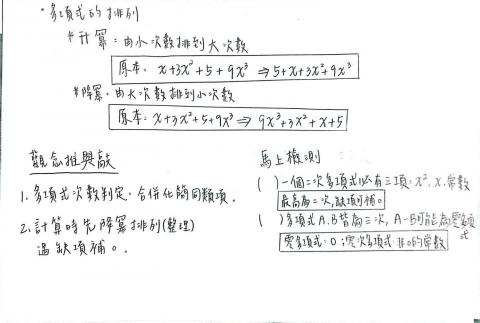 ·多項式的排列
*升冪:由小次數排到大次數
原本:x+3x²+5+9x³ ⇒ 5+x+3x²+9x³
*降冪:由大次數排到小次數
原本:x+3x²+5+9x³ ⇒ 9x³+3x²+x+5
觀念推與敲
1. 多項式次數判定,合併化簡同類項。
2. 計算時先降冪排列(整理)
遇缺項補0。
馬上檢測
( )一個二次多項式必有三項:x²、x、常數
最高為二次,缺項可補0
( )多項式A、B皆為三次,A-B可能為零多項式
零多項式:0;零次多項式:非0的常數